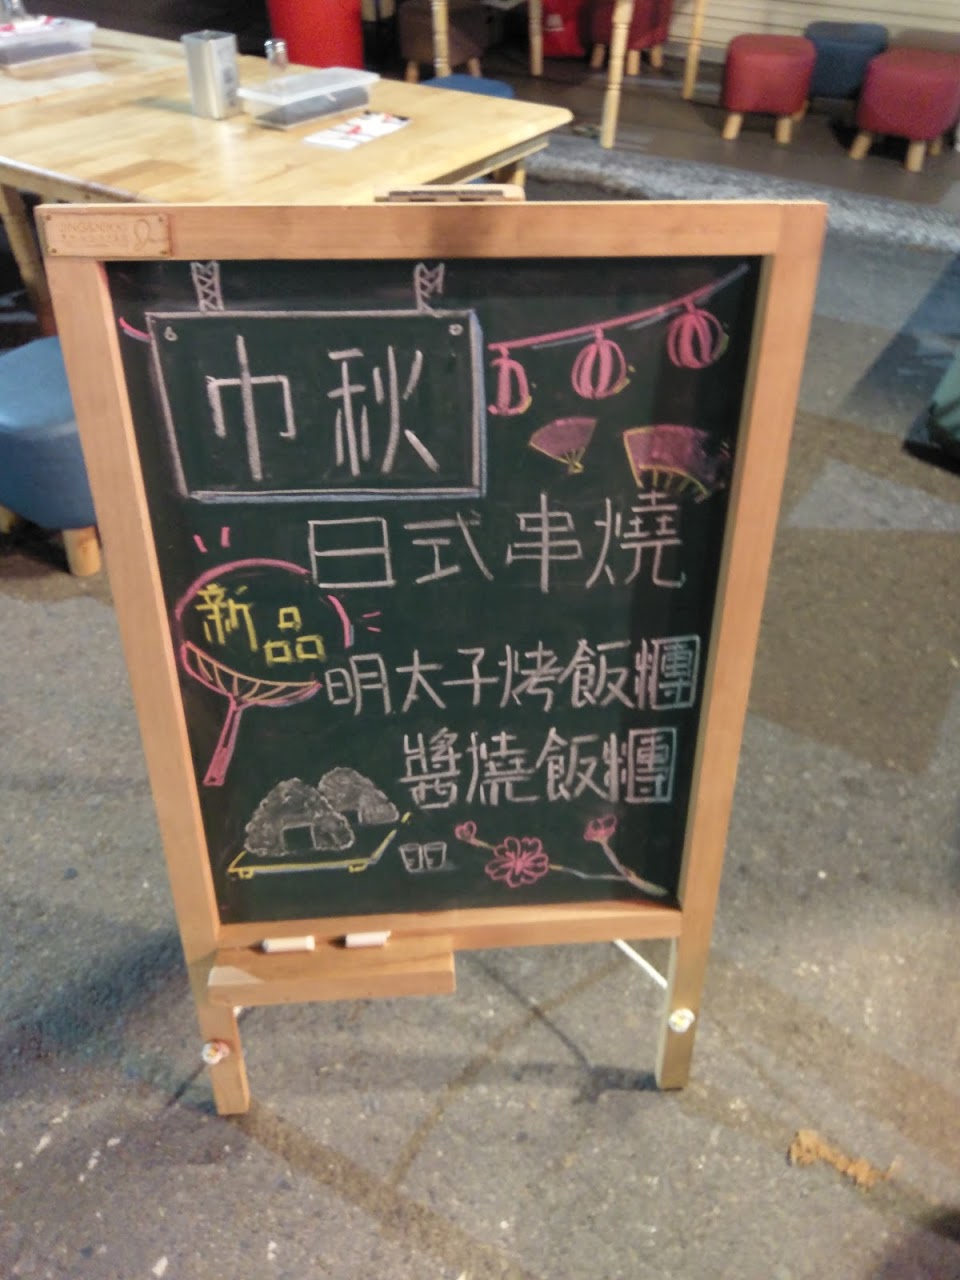 巾秋
日式串燒
新品
明太子烤飯糰
醬燒飯糰